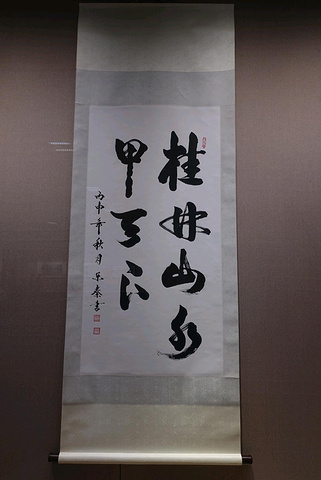 桂林山水
甲天下
丙申年秋月泰書